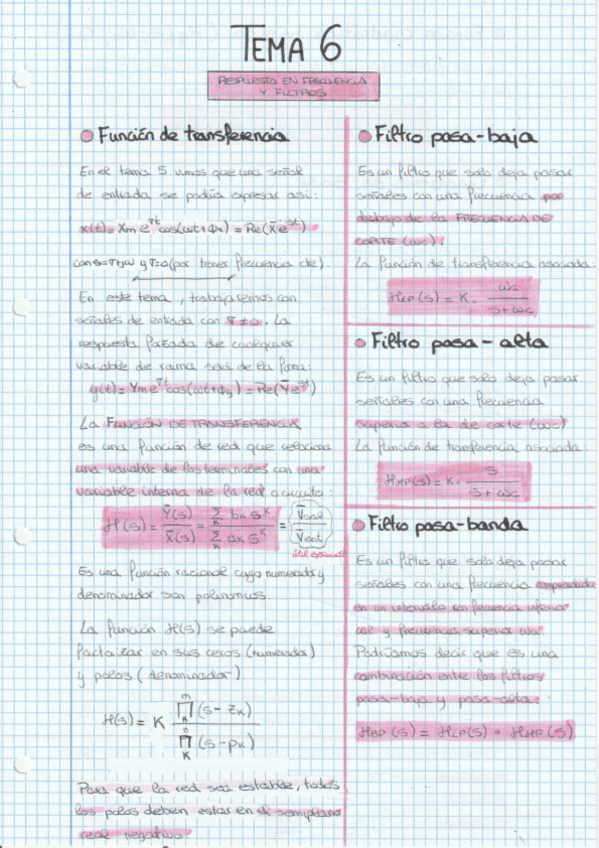 TEMA 6
RESPUESTA EN FRECUENCIA
Y FILTROS
Función de transferencia
En el tema 5 vimos que una señal
de entrada se podía expresar así:
x(t) = Xm e^σt cos(ωt + Φx) = Re(X̄ e^st)
con s=σ+jω y σ=0 (por tener frecuencia cte).
En este tema, trabajaremos con
señales de entrada con σ≠0. La
respuesta forzada de cualquier
variable de rama será de la forma:
y(t) = Ym e^σt cos(ωt + Φy) = Re(Ȳ e^st)
La FUNCIÓN DE TRANSFERENCIA
es una función de red que relaciona
una variable de los terminales con una
variable interna de la red o circuito:
H(s) = Ȳ(s) / X̄(s) = Σ bk s^k / Σ ak s^k = V̄sal / V̄ent
Es una función racional cuyo numerador y
denominador son polinomios.
La función H(s) se puede
factorizar en sus ceros (numerador)
y polos (denominador)
H(s) = K ∏ (s - zk) / ∏ (s - pk)
Para que la red sea estable, todos
los polos deben estar en el semiplano
real negativo.
Filtro pasa-baja
Es un filtro que solo deja pasar
señales con una frecuencia por
debajo de la FRECUENCIA DE
CORTE (ωc).
La función de transferencia asociada:
HLP(s) = K · ωc / s + ωc
Filtro pasa-alta
Es un filtro que solo deja pasar
señales con una frecuencia
superior a la de corte (ωc)
La función de tranferencia asociada:
HHP(s) = K · s / s + ωc
Filtro pasa-banda
Es un filtro que solo deja pasar
señales con una frecuencia comprendida
en un intervalo con frecuencia inferior
ωl y frecuencia superior ωu.
Podríamos decir que es una
combinación entre los filtros
pasa-baja y pasa-alta:
HBP(s) = HLP(s) · HHP(s)